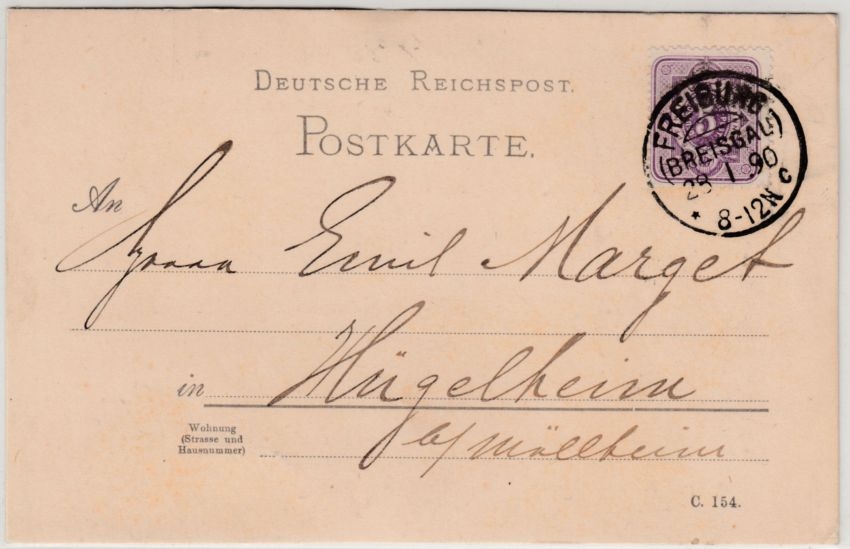 DEUTSCHE REICHSPOST.
POSTKARTE.
FREIBURG
(BREISGAU)
29 1 90
* 8-12N c
An
Herrn Emil Marget
in Hügelheim
Wohnung
(Strasse und
Hausnummer)
b/ Müllheim
C. 154.